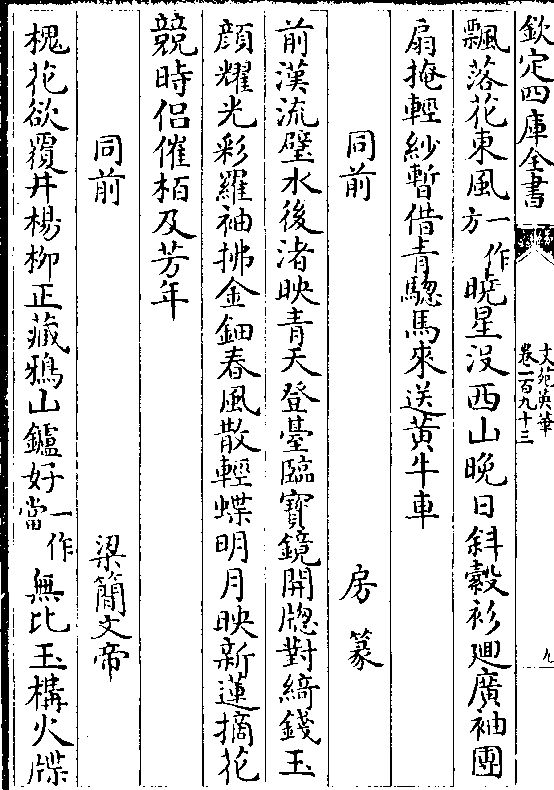 欽定四庫全書
文苑英華
卷二百九十三
九
飄落花東風一作方曉星没西山晩日斜縠衫廻廣袖團
扇掩輕紗暫借青驄馬來送黄牛車
同前 房篆
前漢流璧水後渚映青天登臺臨寶鏡開牕對綺錢玉
顔耀光彩羅袖拂金鈿春風散輕蝶明月映新蓮摘花
競時侣催栢及芳年
同前 梁簡文帝
槐花欲覆井楊栁正藏鴉山鑪好一作當無比玉構火牒